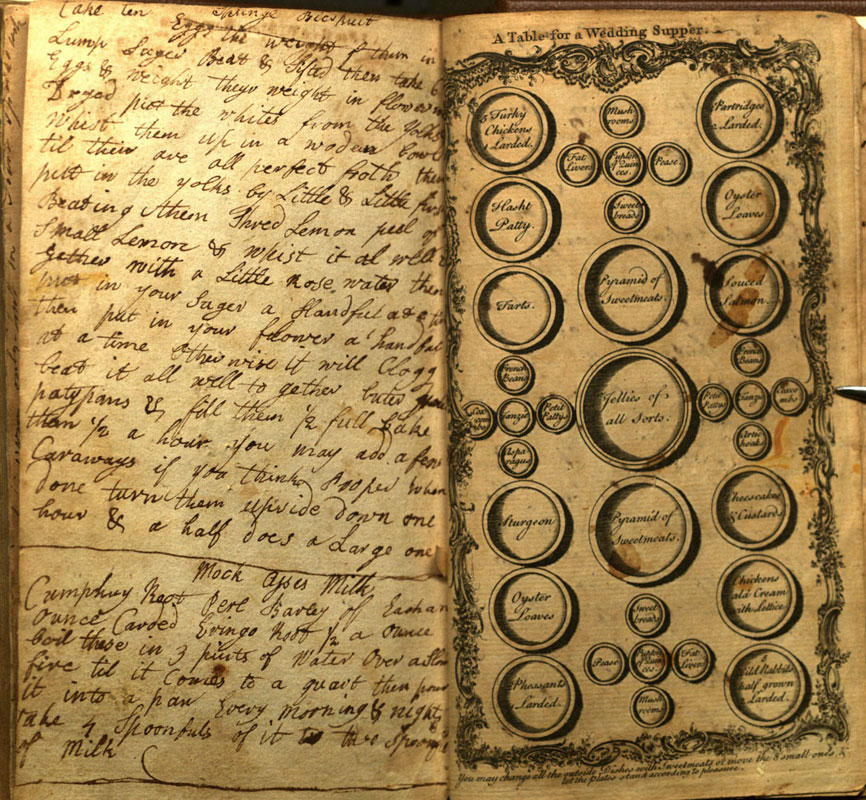 Take ten Springe Biescuit
Eggs the weight of them in
Lump Suger Beat & Sifted then take 6
Eggs & weight theyr weight in flower
Dryed put the whites from the Yolks
Whist them up in a woden bowl
til their are all perfect froth then
putt in the yolks by Little & Little first
Beating them Shred Lemon peel of
Small Lemon & whist it al well
gether with a Little Rose water then
put in your Suger a Handful att a
then put in your flower a handful
at a time otherwise it will Clogg
beat it all well to gether buter your
patypans & fill them 1/2 full bake
than 1/2 a hour you may add a few
Caraways if you think Pooper when
done turn them upside down one
hour & a half does a Large one
Mock Asses Milk
Cumphry Root Perl Barley of Each an
ounce Canded Eringo Root 1/2 a ounce
boil these in 3 pints of Water over a Slow
fire til it Comes to a quart then pour
it into a pan Every morning & night
take 4 Spoonfuls of it to two Spoonfuls
of Milk
A Table for a Wedding Supper.
3 Turky
Chickens
1 Larded.
Mush
rooms
Partridges
2 Larded.
Fat
Livers
Pupton
of Quin
ces
Pease.
Sweet
breads
Hasht
Patty.
Oyster
Loaves
Tarts.
Pyramid of
Sweetmeats.
Souced
Salmon.
French
Beans
French
Beans
Cox
combs
Tanzie
Petit
Pattys
Jellies of
all Sorts.
Petit
Pattys
Tanzie
Coxco
mbs
Aspa
ragus
Artic
hoak
Sturgeon
Pyramid of
Sweetmeats.
Cheescakes
& Custards.
Oyster
Loaves
Sweet
breads
Chickens
ald Cream
with Lettice.
Pease
Pupton
of Quin
ces
Fat
Livers
Mush
rooms
2 Pheasants
1 Larded.
4
Wild Rabbits
half grown
Larded.
You may change all the outside Dishes with Sweetmeats or move the 8 small ones, &
let the Plates stand according to pleasure.